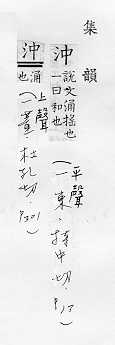 集韻
沖 說文涌搖也
一曰和也(平聲
一東,持中切,P.17)
沖 涌
也(上聲
一董,杜孔切,P.301)